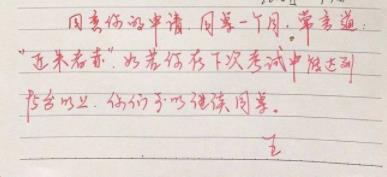 同意你的申请，同桌一个月，常言道：
“近朱者赤”，如若你在下次考试中能达到
以上，你们可以继续同桌。
王